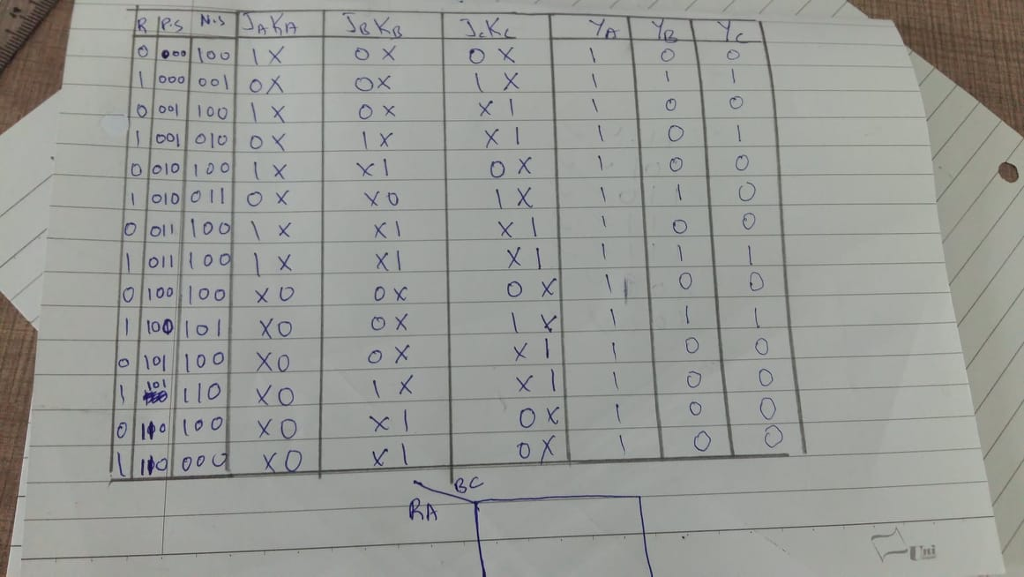 R P.S N.S JAKA JBKB JCKC YA YB YC
0 000 100 1X 0X 0X 1 0 0
1 000 001 0X 0X 1X 1 1 1
0 001 100 1X 0X X1 1 0 0
1 001 010 0X 1X X1 1 0 1
0 010 100 1X X1 0X 1 0 0
1 010 011 0X X0 1X 1 1 0
0 011 100 1X X1 X1 1 0 0
1 011 100 1X X1 X1 1 1 1
0 100 100 X0 0X 0X 1 0 0
1 100 101 X0 0X 1X 1 1 1
0 101 100 X0 0X X1 1 0 0
1 101 110 X0 1X X1 1 0 0
0 110 100 X0 X1 0X 1 0 0
1 110 000 X0 X1 0X 1 0 0
BC
RA
Uni